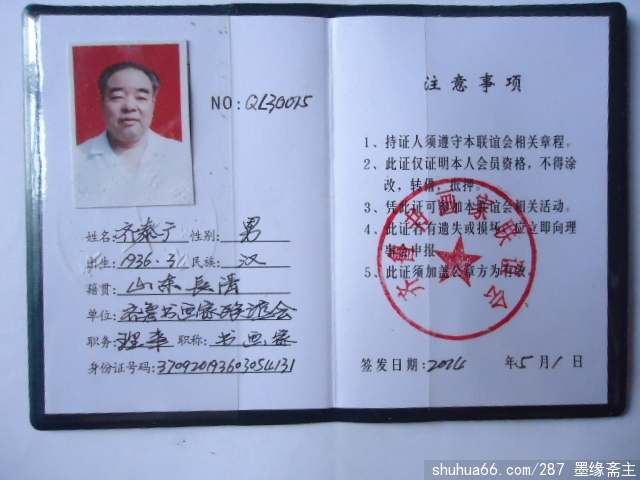 NO:QL30015
姓名:齐泰宁 性别:男
出生:1936.3. 民族:汉
籍贯:山东长清
单位:齐鲁书画家联谊会
职务:理事 职称:书画家
身份证号码:370920193603054131
注意事项
1、持证人须遵守本联谊会相关章程。
2、此证仅证明本人会员资格，不得涂
改，转借，抵押。
3、凭此证可参加本联谊会相关活动。
4、此证若有遗失或损坏，应立即向理
事会申报
5、此证须加盖公章方为有效。
齐鲁书画家联谊会
签发日期:2014 年5月1日
shuhua66.com/287 墨缘斋主